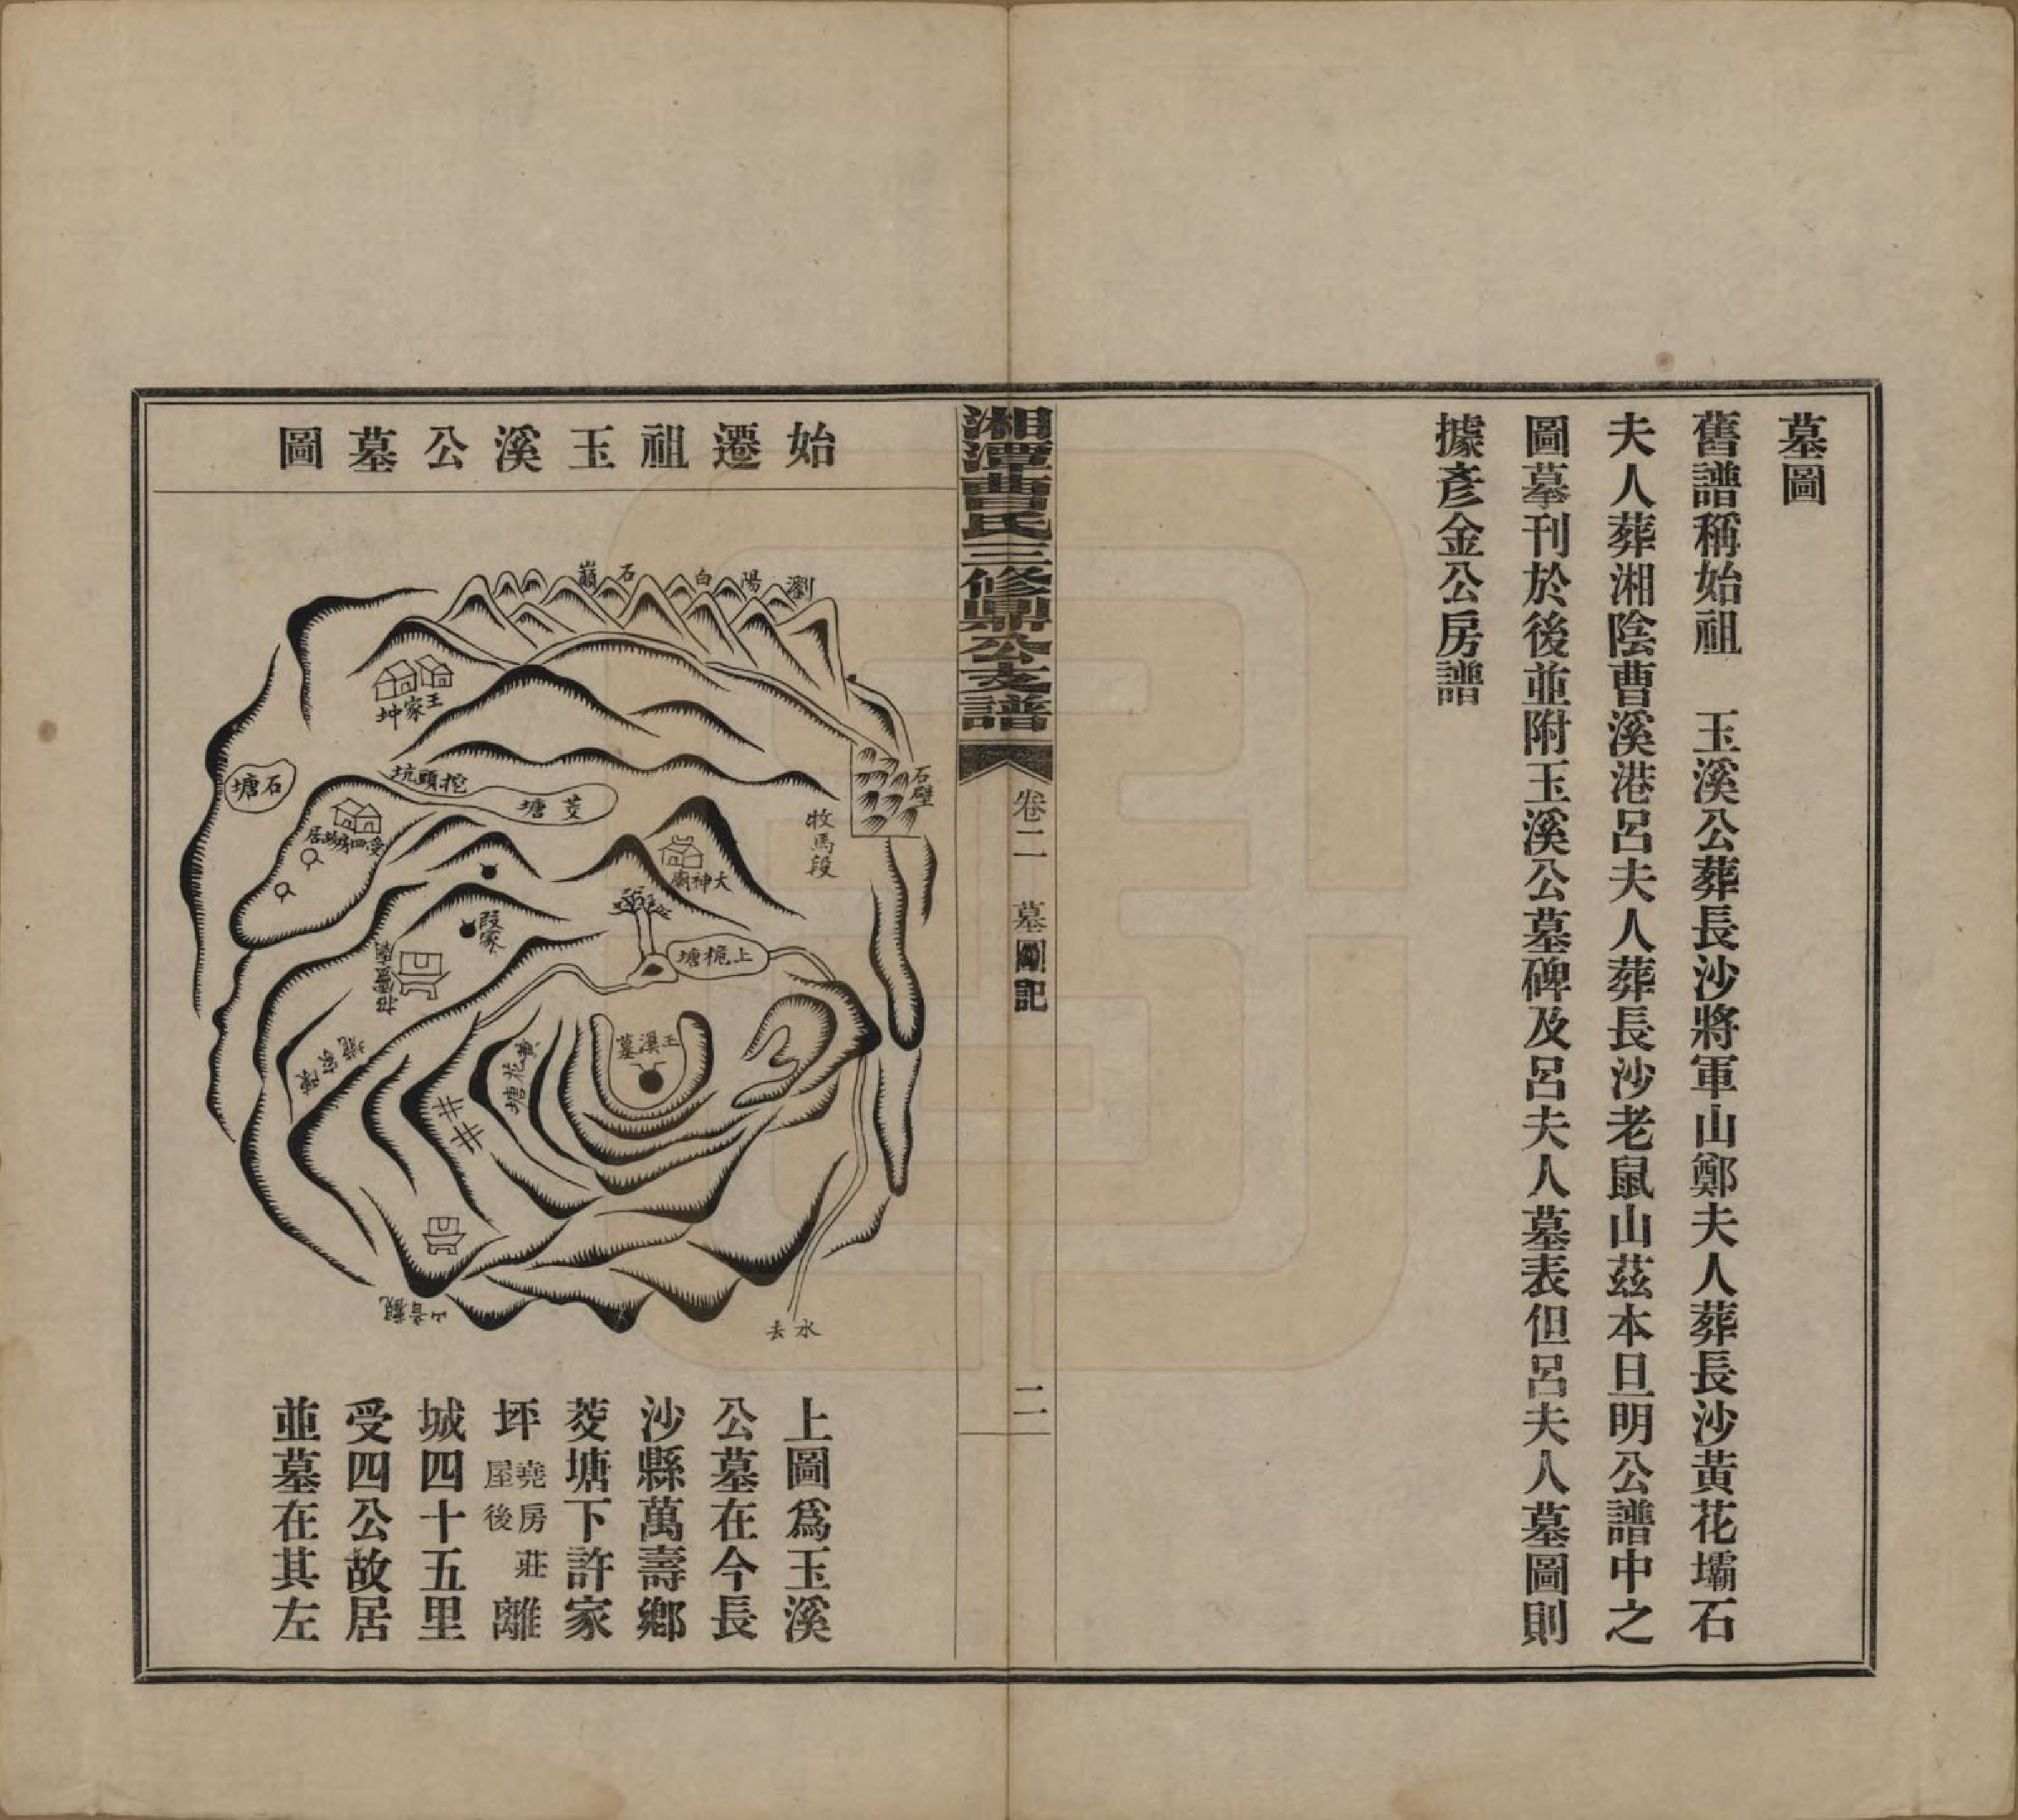 墓圖
舊譜稱始祖　玉溪公葬長沙將軍山鄭夫人葬長沙黃花壩石
夫人葬湘陰曹溪港呂夫人葬長沙老鼠山茲本旦明公譜中之
圖摹刊於後並附玉溪公墓碑及呂夫人墓表但呂夫人墓圖則
據彥金公房譜
湘潭曹氏三修鼎公支譜
卷二
墓圖記
二
始遷祖玉溪公墓圖
瀏陽白石巔
王家坤
石壁
石塘
挖頭坑
茭塘
牧馬段
受四房故居
大神廟
段家
上桅塘
玉溪墓
黃花塘
觀音山
水去
上圖為玉溪
公墓在今長
沙縣萬壽鄉
茭塘下許家
坪堯房莊屋後離
城四十五里
受四公故居
並墓在其左